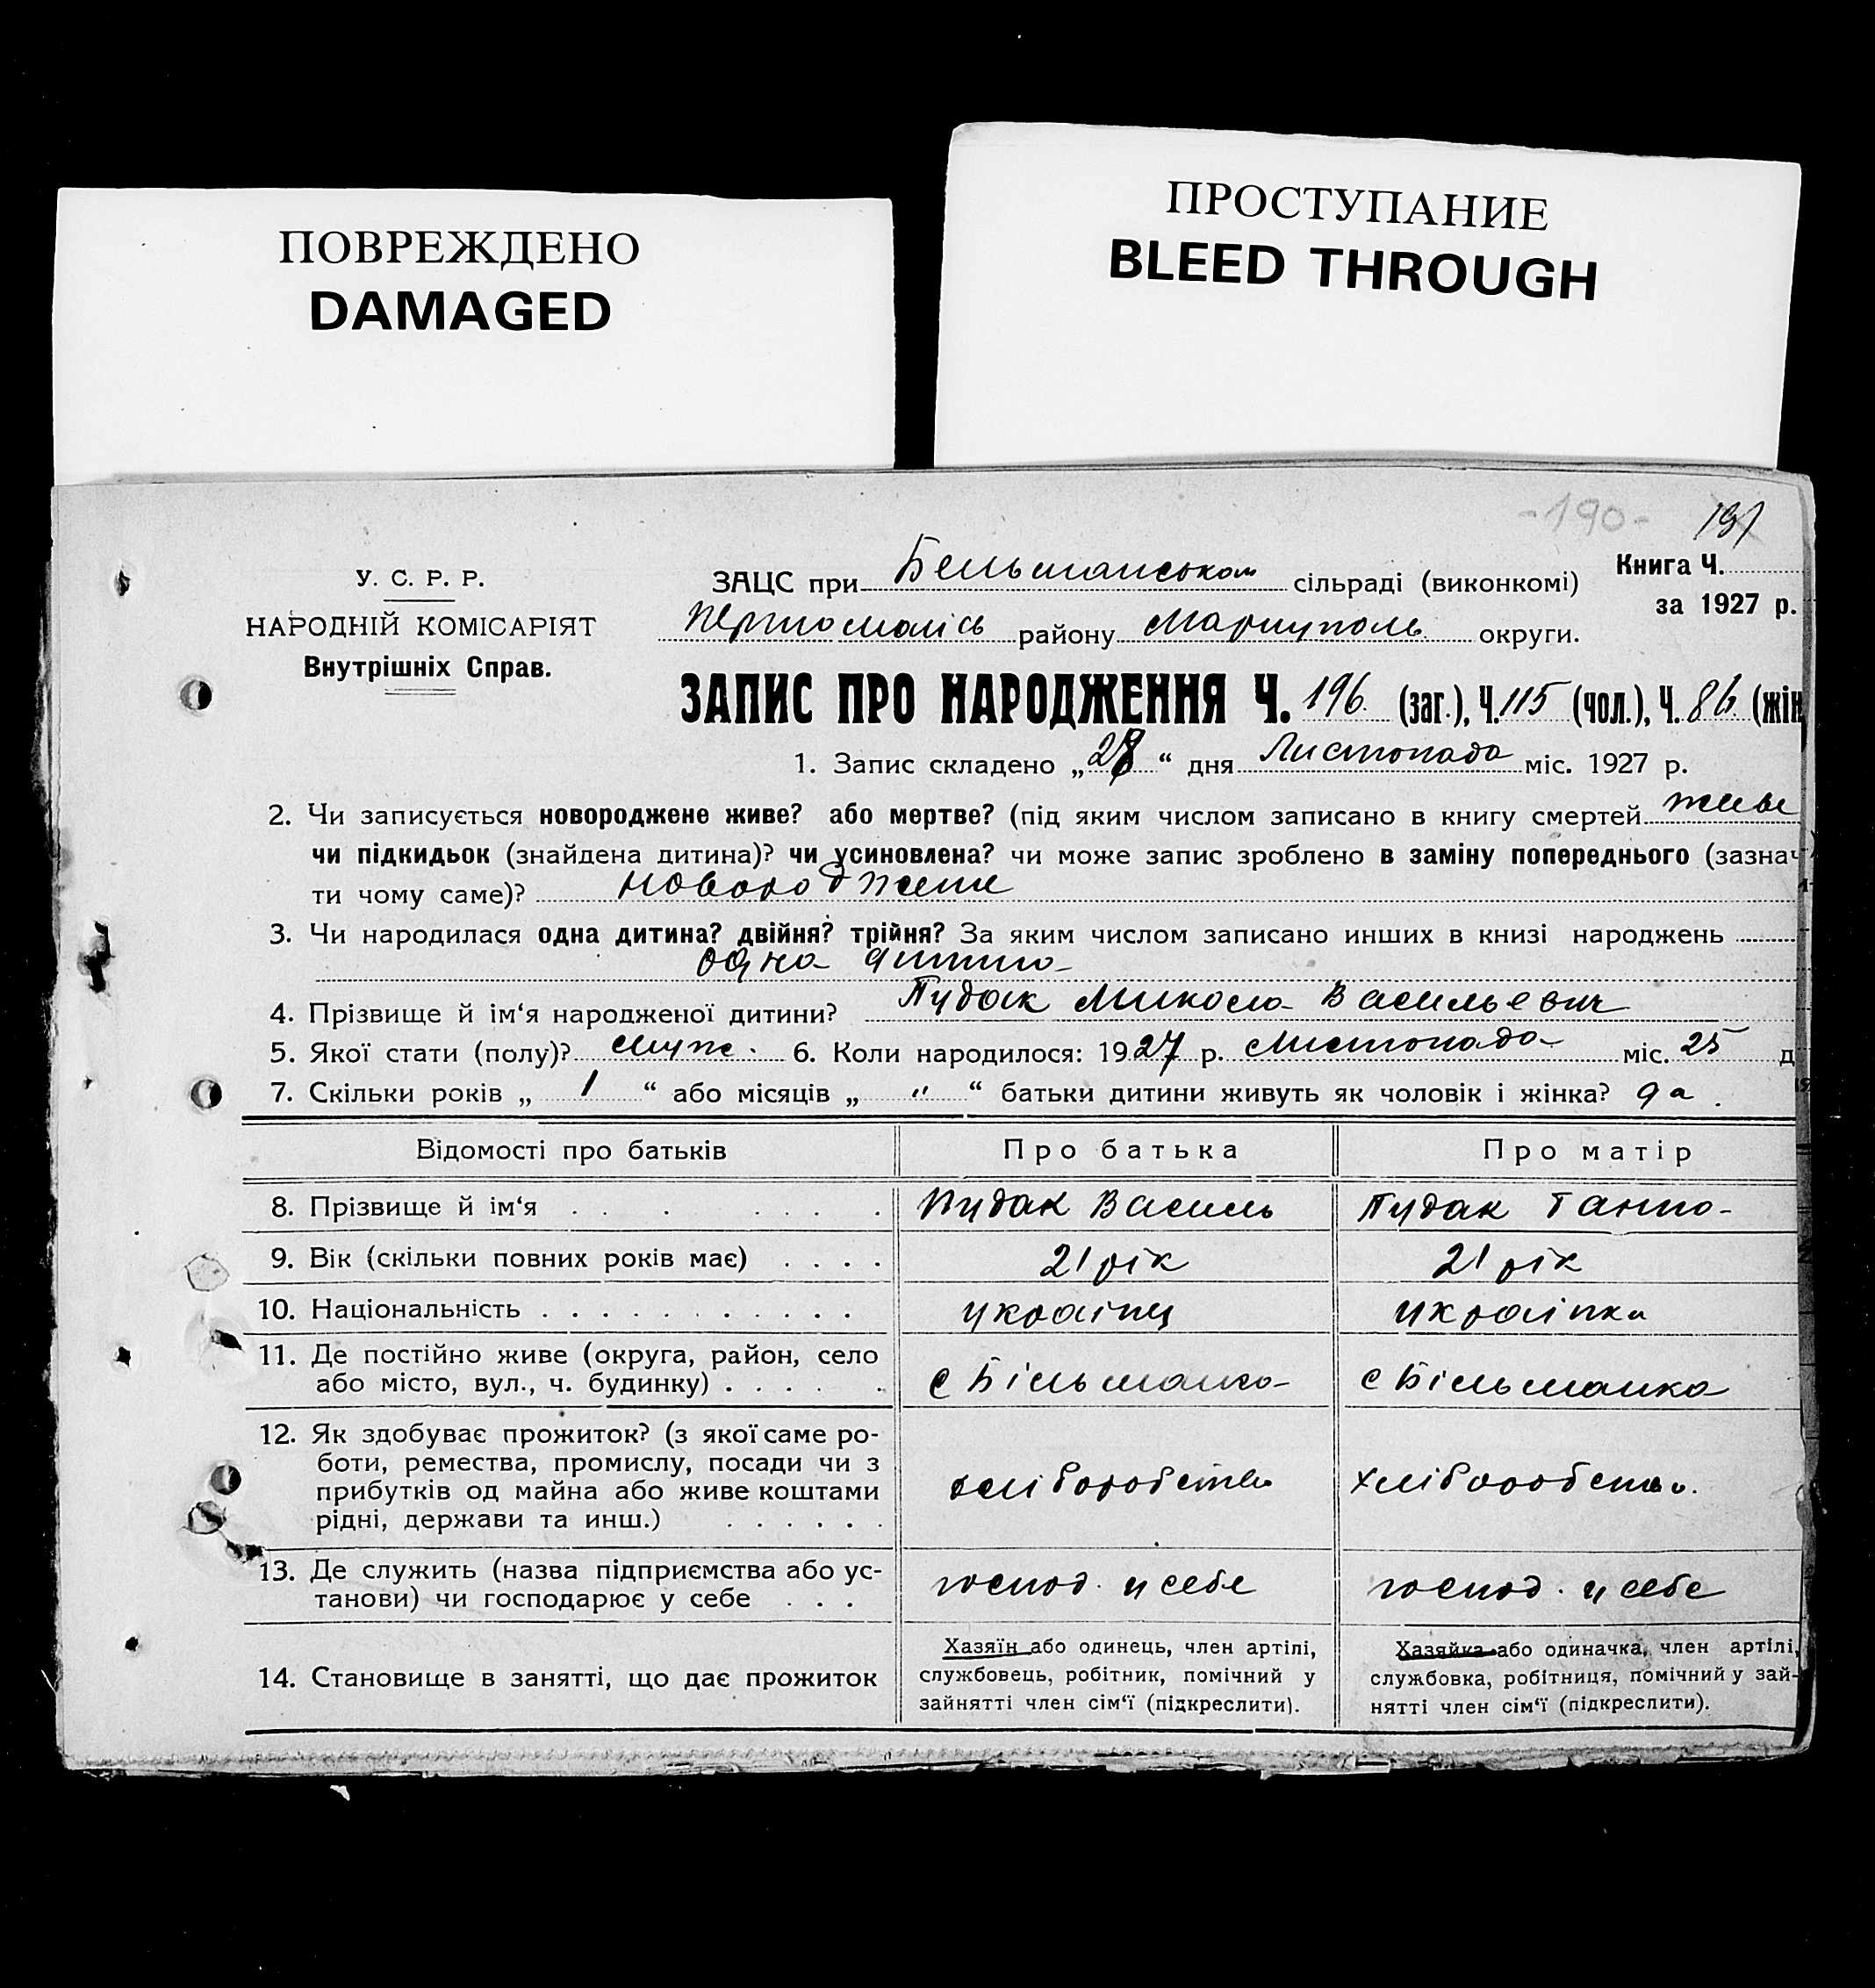 ПОВРЕЖДЕНО
DAMAGED
ПРОСТУПАНИЕ
BLEED THROUGH
-190- 191
У. С. Р. Р.
НАРОДНІЙ КОМІСАРІЯТ
Внутрішніх Справ.
ЗАЦС при Бельманськом сільраді (виконкомі)
Книга Ч.
за 1927 р.
району Мариуполь округи.
ЗАПИС ПРО НАРОДЖЕННЯ Ч. 196 (заг.), Ч. 115 (чол.), Ч. 86 (жін
1. Запис складено „28“ дня Листопада міс. 1927 р.
2. Чи записується новороджене живе? або мертве? (під яким числом записано в книгу смертей живе
чи підкидьок (знайдена дитина)? чи усиновлена? чи може запис зроблено в заміну попереднього (зазнач
ти чому саме)? новороджене
3. Чи народилася одна дитина? двійня? трійня? За яким числом записано инших в книзі народжень
одна дитина
4. Прізвище й ім‘я народженої дитини? Пудак Микола Васильевич
5. Якої стати (полу)? муж. 6. Коли народилося: 1927 р. Листопада міс. 25 д
7. Скільки років „ 1 “ або місяців „ " “ батьки дитини живуть як чоловік і жінка? да.
Відомості про батьків Про батька Про матір
8. Прізвище й ім‘я Пудак Василь Пудак Ганна
9. Вік (скільки повних років має) 21 рік 21 рік
10. Національність українц українка
11. Де постійно живе (округа, район, село
або місто, вул., ч. будинку) с Більманка с Більманка
12. Як здобуває прожиток? (з якої саме ро-
боти, ремества, промислу, посади чи з
прибутків од майна або живе коштами
рідні, держави та инш.) хліборобства хліборобства.
13. Де служить (назва підприємства або ус-
танови) чи господарює у себе господ. у себе господ. у себе
14. Становище в занятті, що дає прожиток
Хазяїн або одинець, член артілі,
службовець, робітник, помічний у
зайнятті член сім‘ї (підкреслити).
Хазяйка або одиначка, член артілі,
службовка, робітниця, помічний у зай-
нятті член сім‘ї (підкреслити).